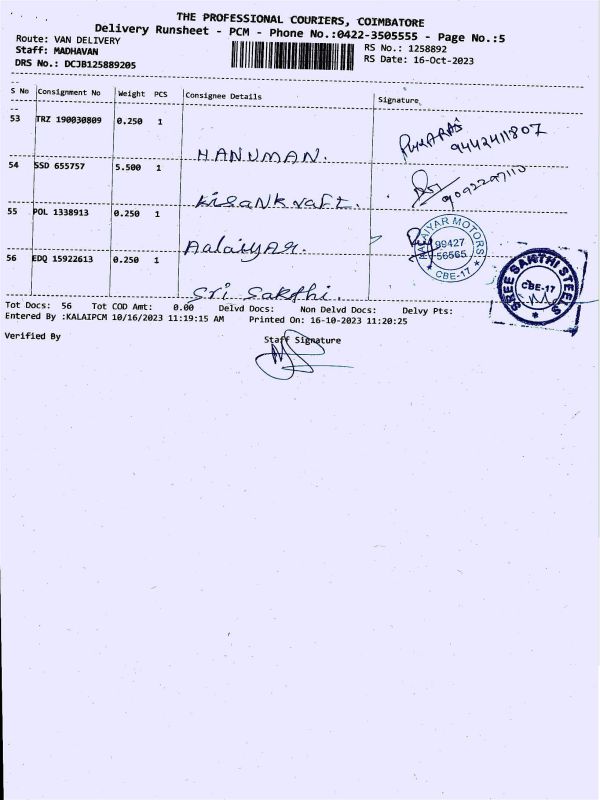 THE PROFESSIONAL COURIERS, COIMBATORE
Delivery Runsheet - PCM - Phone No.:0422-3505555 - Page No.:5
Route: VAN DELIVERY
RS No.: 1258892
Staff: MADHAVAN
RS Date: 16-Oct-2023
DRS No.: DCJB125889205
S No Consignment No Weight PCS Consignee Details Signature
53 TRZ 190030809 0.250 1
HANUMAN.
9442411807
54 SSD 655757 5.500 1
Kisankraft.
55 POL 1338913 0.250 1
Aalaiyar.
AALAIYAR MOTORS
99427
56565
CBE-17
56 EDQ 15922613 0.250 1
Sri Sakthi.
SREE SAKTHI STEELS
CBE-17
Tot Docs: 56 Tot COD Amt: 0.00 Delvd Docs: Non Delvd Docs: Delvy Pts:
Entered By :KALAIPCM 10/16/2023 11:19:15 AM Printed On: 16-10-2023 11:20:25
Verified By
Staff Signature